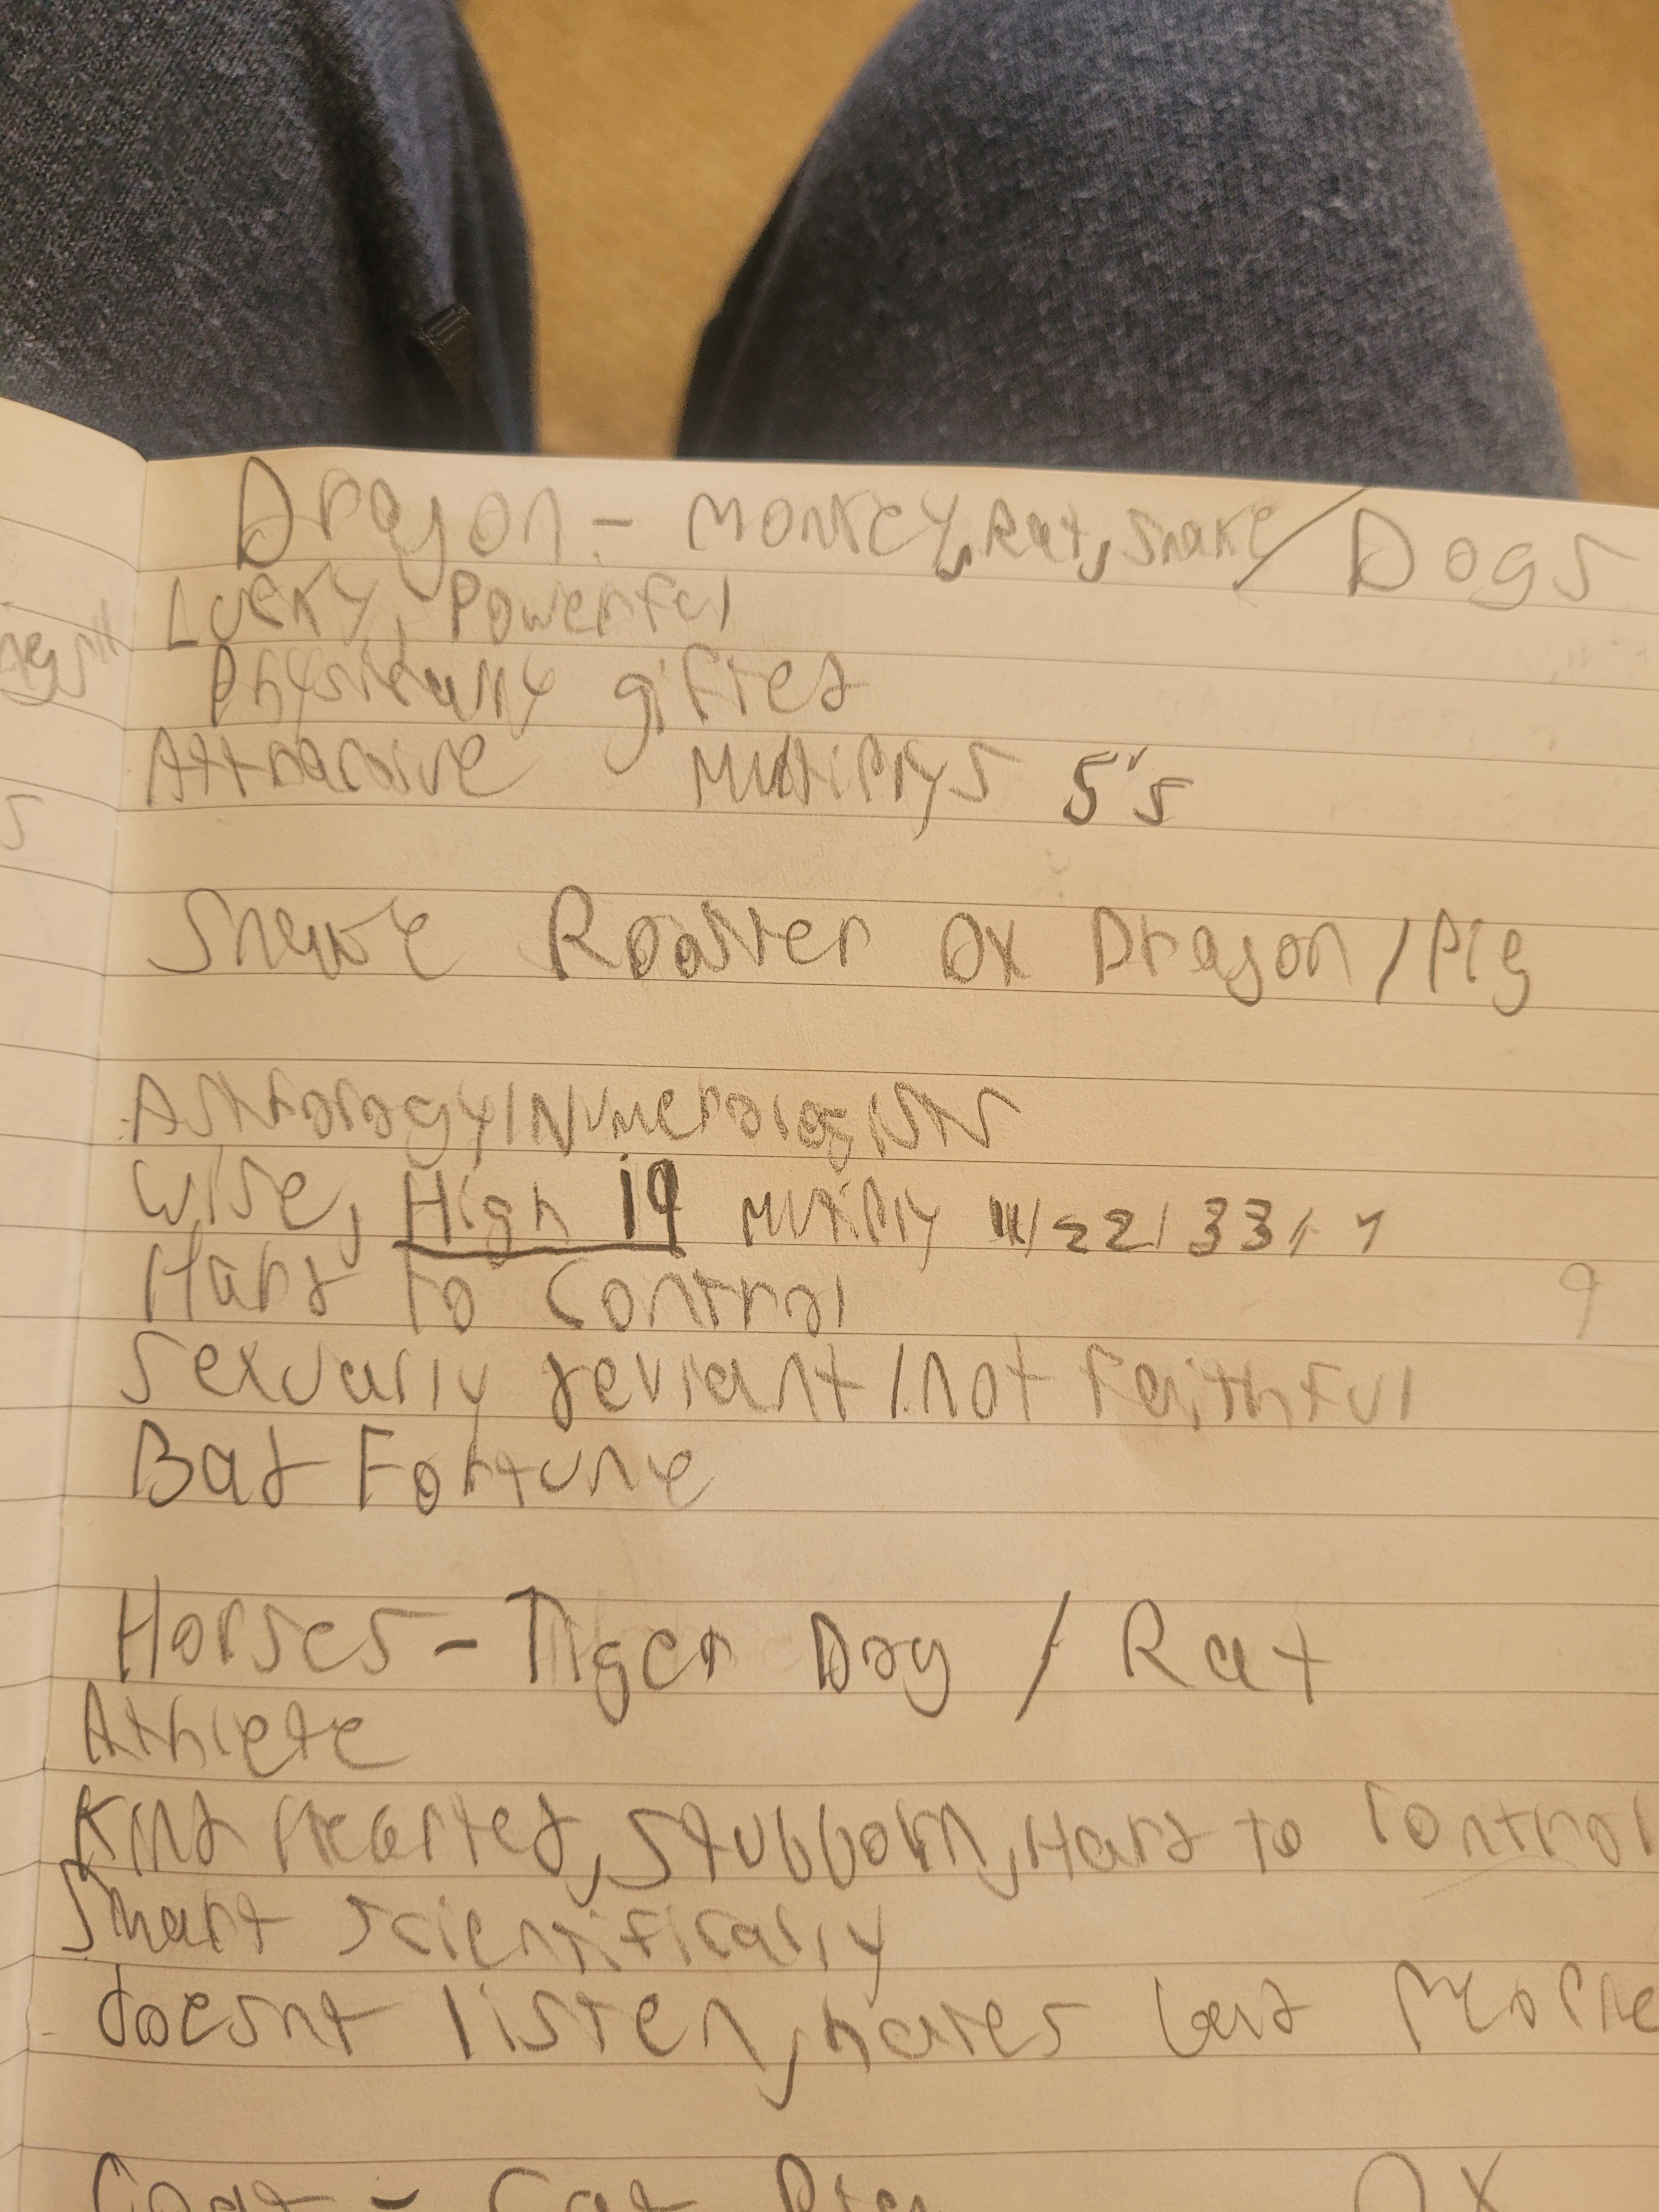 Dragon - Monkey, Rat, Snake / Dogs
Lucky, Powerful
Physically gifted
Attractive Multiplys 5's
Snake Rooster Ox Dragon / Pig
Astrology / Numerologists
Wise, High iq Multiply 11/22/33/
Hard to Control
Sexually deviant / not faithful
Bad Fortune
Horses - Tiger Dog / Rat
Athlete
Kind hearted, Stubborn, Hard to Control
Smart scientifically
doesnt listen, hates bad People
Goat - Cat Pig Ox